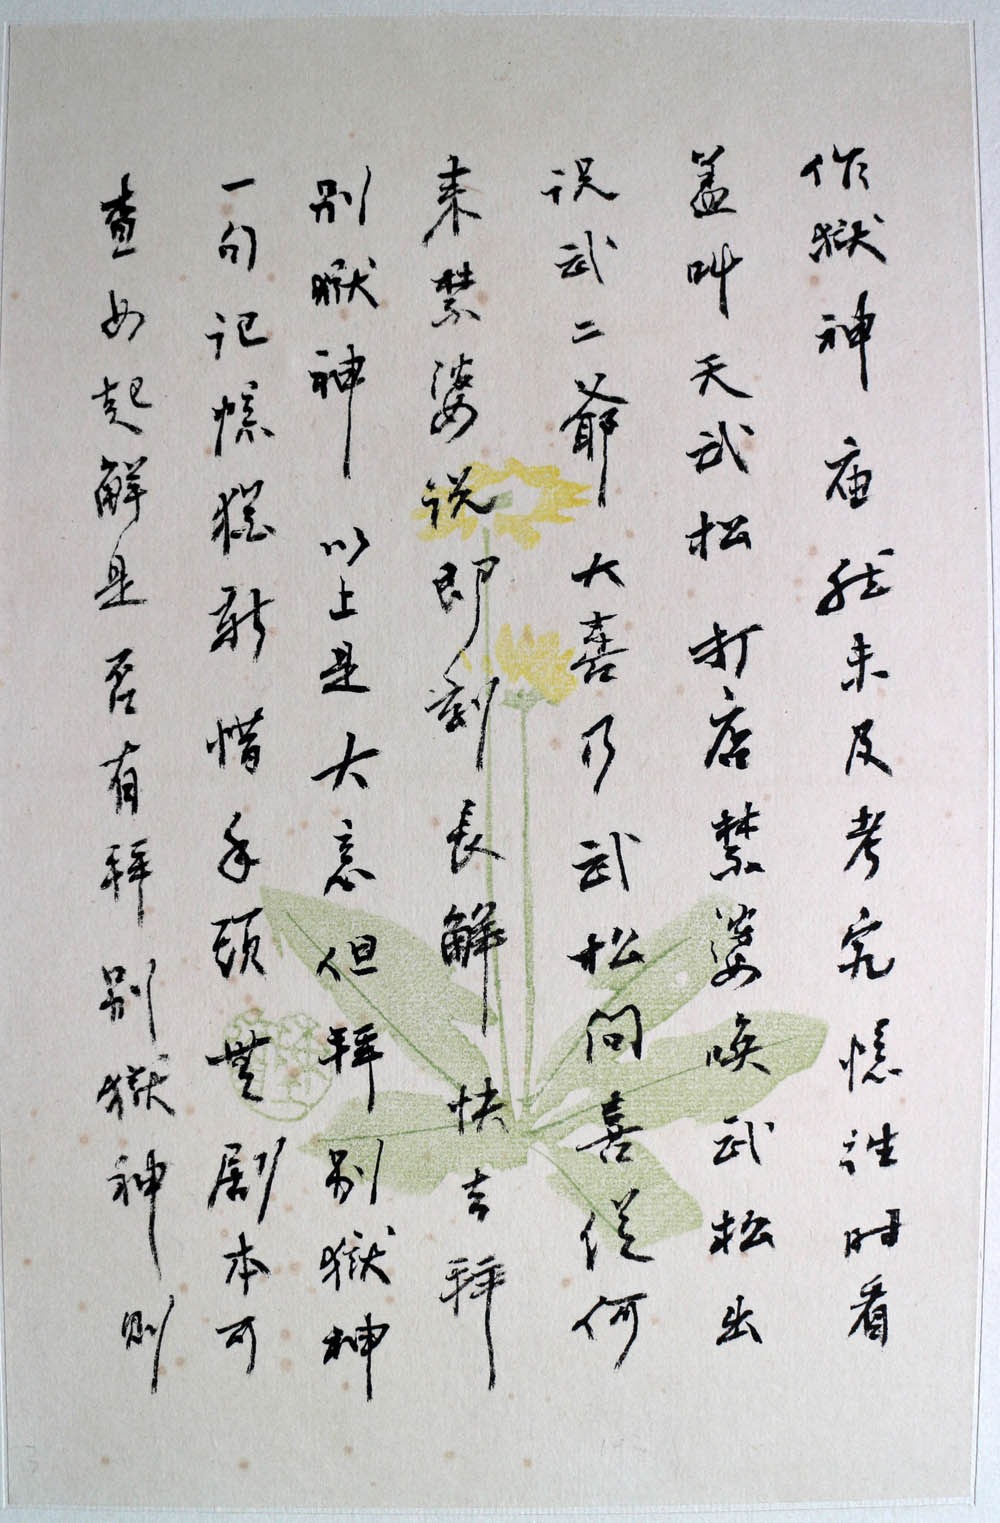 作獄神庙然未及考究憶往时看
盖叫天武松打店禁婆唤武松出
说武二爺大喜乃武松问喜從何
来禁婆说即刻長解快去拜
别獄神以上是大意但拜别獄神
一句记憶犹新惜手頭無劇本可
查女起解是否有拜别獄神则